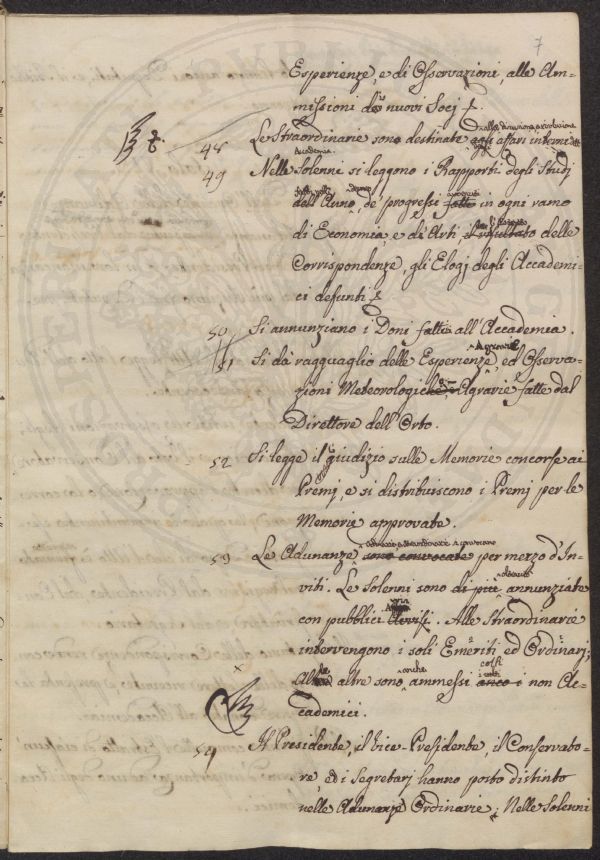 7
Esperienze, e di Osservazioni, alle Am-
missioni de nuovi Socj.
48 Le Straordinarie sono destinate agli affari interni dell'
Accademia.
49 Nelle Solenni si leggono i Rapporti degli Studj
dell'Anno, de' progressi fatti in ogni ramo
di Economia, e de Arti, il risultato delle
Corrispondenze, gli Elogj degli Accademi-
ci defunti.
50 Si annunziano i Doni fatti all'Accademia.
51 Si dà ragguaglio delle Esperienze Agrarie, ed Osserva-
zioni Meteorologiche Agrarie fatte dal
Direttore dell'Orto.
52 Si legge il giudizio sulle Memorie concorse ai
Premj, e si distribuiscono i Premj per le
Memorie approvate.
53 Le Adunanze sono convocate per mezzo d'In-
viti. Le Solenni sono di più annunziate
con pubblici Avvisi. Alle Straordinarie
intervengono i soli Emeriti ed Ordinarj;
Alle altre sono anche ammessi anco i non Ac-
cademici.
54 Il Presidente, il Vice-Presidente, il Conservato-
re, ed i Segretarj hanno posto distinto
nelle Adunanze Ordinarie; Nelle Solenni